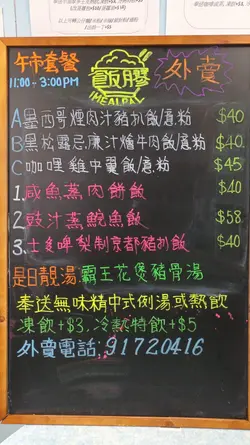 午市套餐
11:00-3:00PM
飯膠
IMEALPAY
外賣
A墨西哥煙肉汁豬扒飯/意粉 $40
B黑松露忌廉汁燴牛肉飯/意粉 $40
C咖哩雞中翼飯/意粉 $45
1.咸魚蒸肉餅飯 $40
2.豉汁蒸鯇魚飯 $58
3.士多啤梨制京都豬扒飯 $40
是日靚湯:霸王花煲豬骨湯
奉送無味精中式例湯或熱飲
凍飲+$3,冷熱特飲+$5
外賣電話:91720416